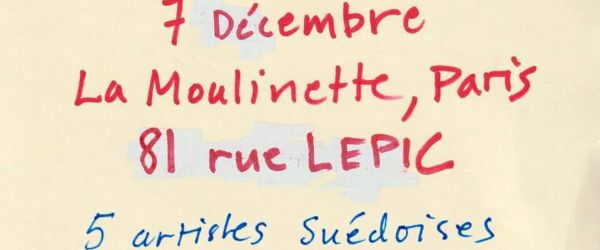 7 Décembre
La Moulinette, Paris
81 rue LEPIC
5 artistes Suédoises